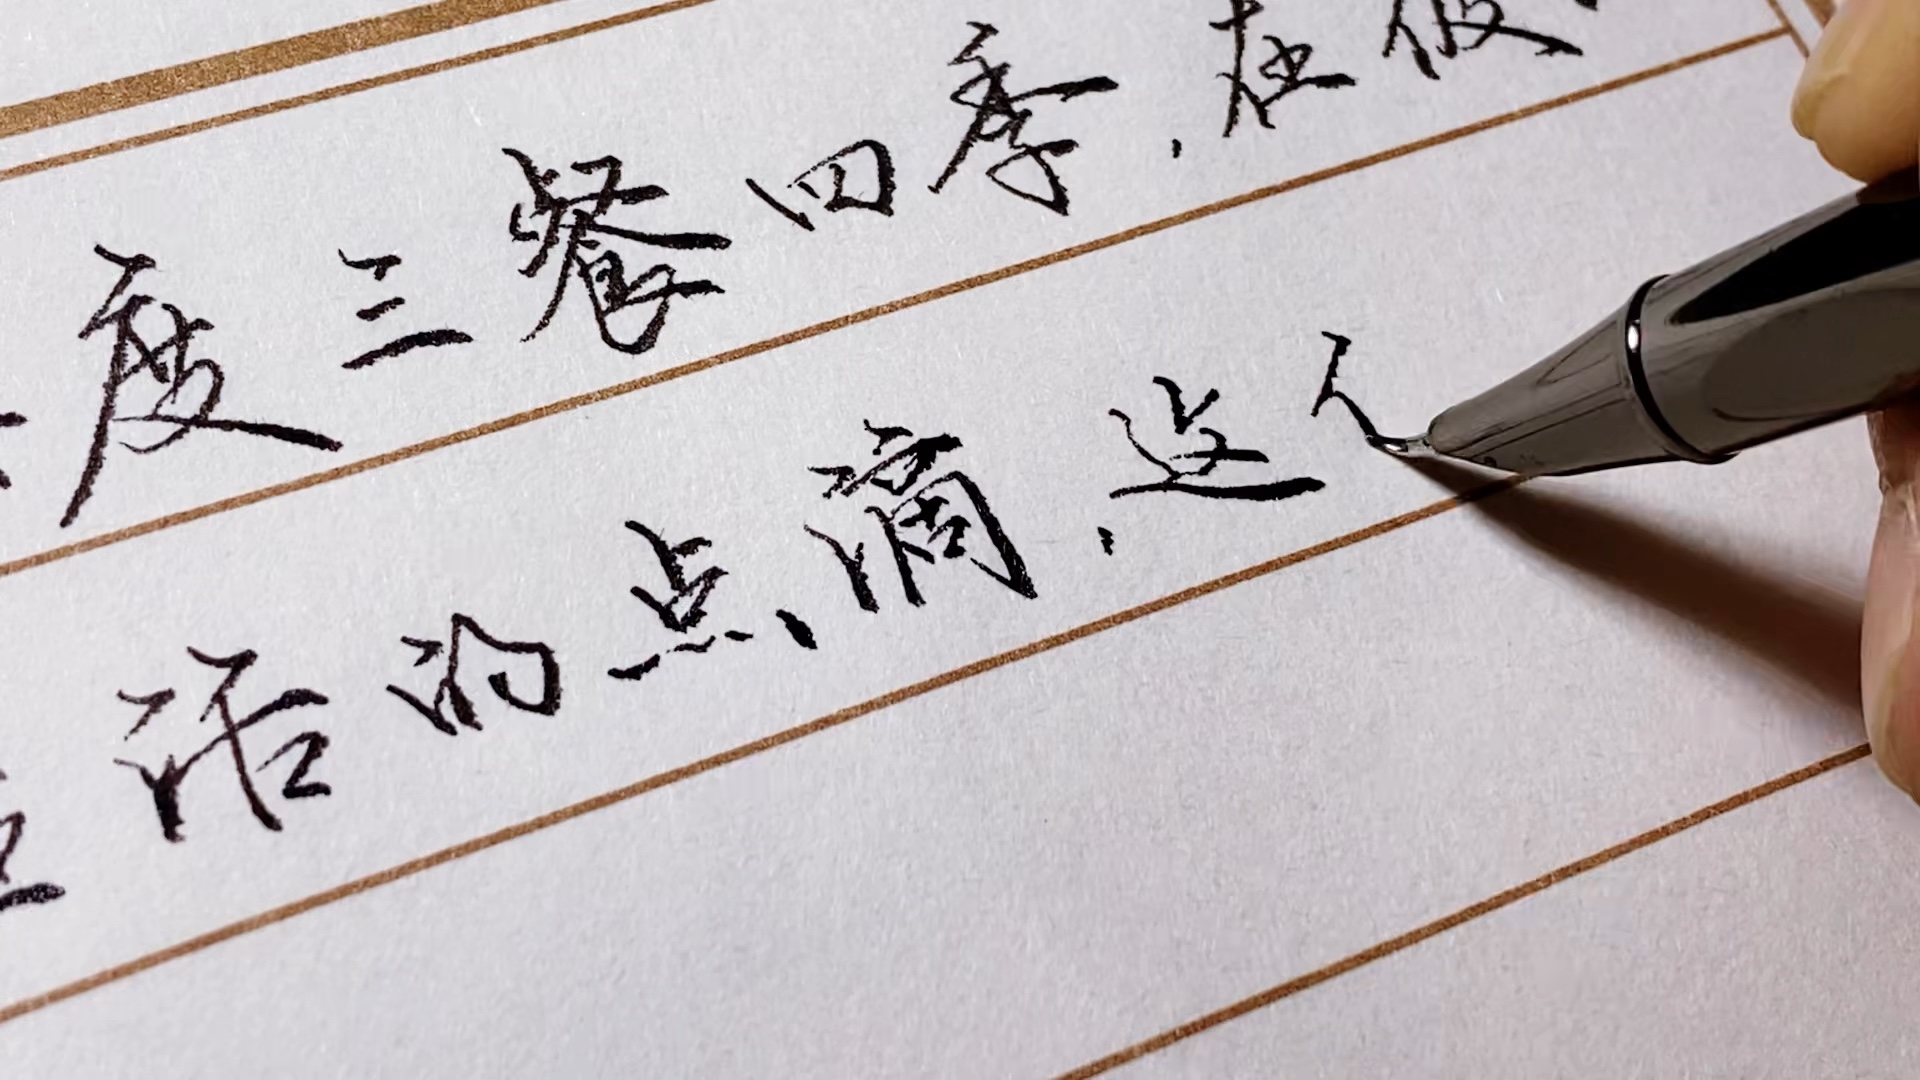 度三餐四季，在彼
活的点滴，这人